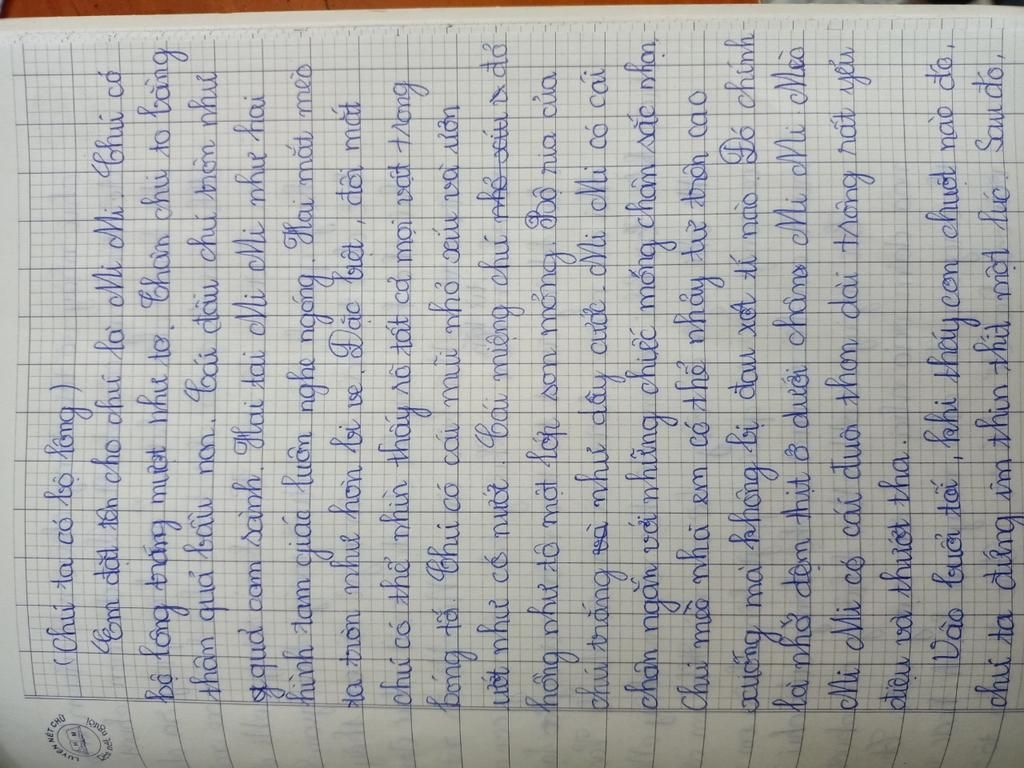 (Chú ta có bộ lông)
Em đặt tên cho chú là Mi Mi. Chú có
bộ lông trắng mượt như tơ. Thân chú to bằng
thân quả bầu non. Cái đầu chú tròn như
quả cam sành. Hai tai Mi Mi như hai
hình tam giác luôn nghe ngóng. Hai mắt mèo
ta tròn như hòn bi ve. Đặc biệt, đôi mắt
chú có thể nhìn thấy rõ tất cả mọi vật trong
bóng tối. Chú có cái mũi nhỏ xíu và luôn
ướt như có nước. Cái miệng chú nhỏ xíu đỏ
hồng như tô một lớp son mỏng. Bộ ria của
chú trắng như dây cước. Mi Mi có cái
chân ngắn với những chiếc móng chân sắc nhọn.
Chú mèo nhà em có thể nhảy từ trên cao
xuống mà không bị đau xót tí nào. Đó chính
là nhờ đệm thịt ở dưới chân Mi Mi. Mèo
Mi Mi có cái đuôi thon dài trông rất yểu
điệu và thướt tha.
Vào buổi tối, khi thấy con chuột nào đó,
chú ta đứng im thin thít một lúc. Sau đó,
LUYỆN NÉT CHỮ